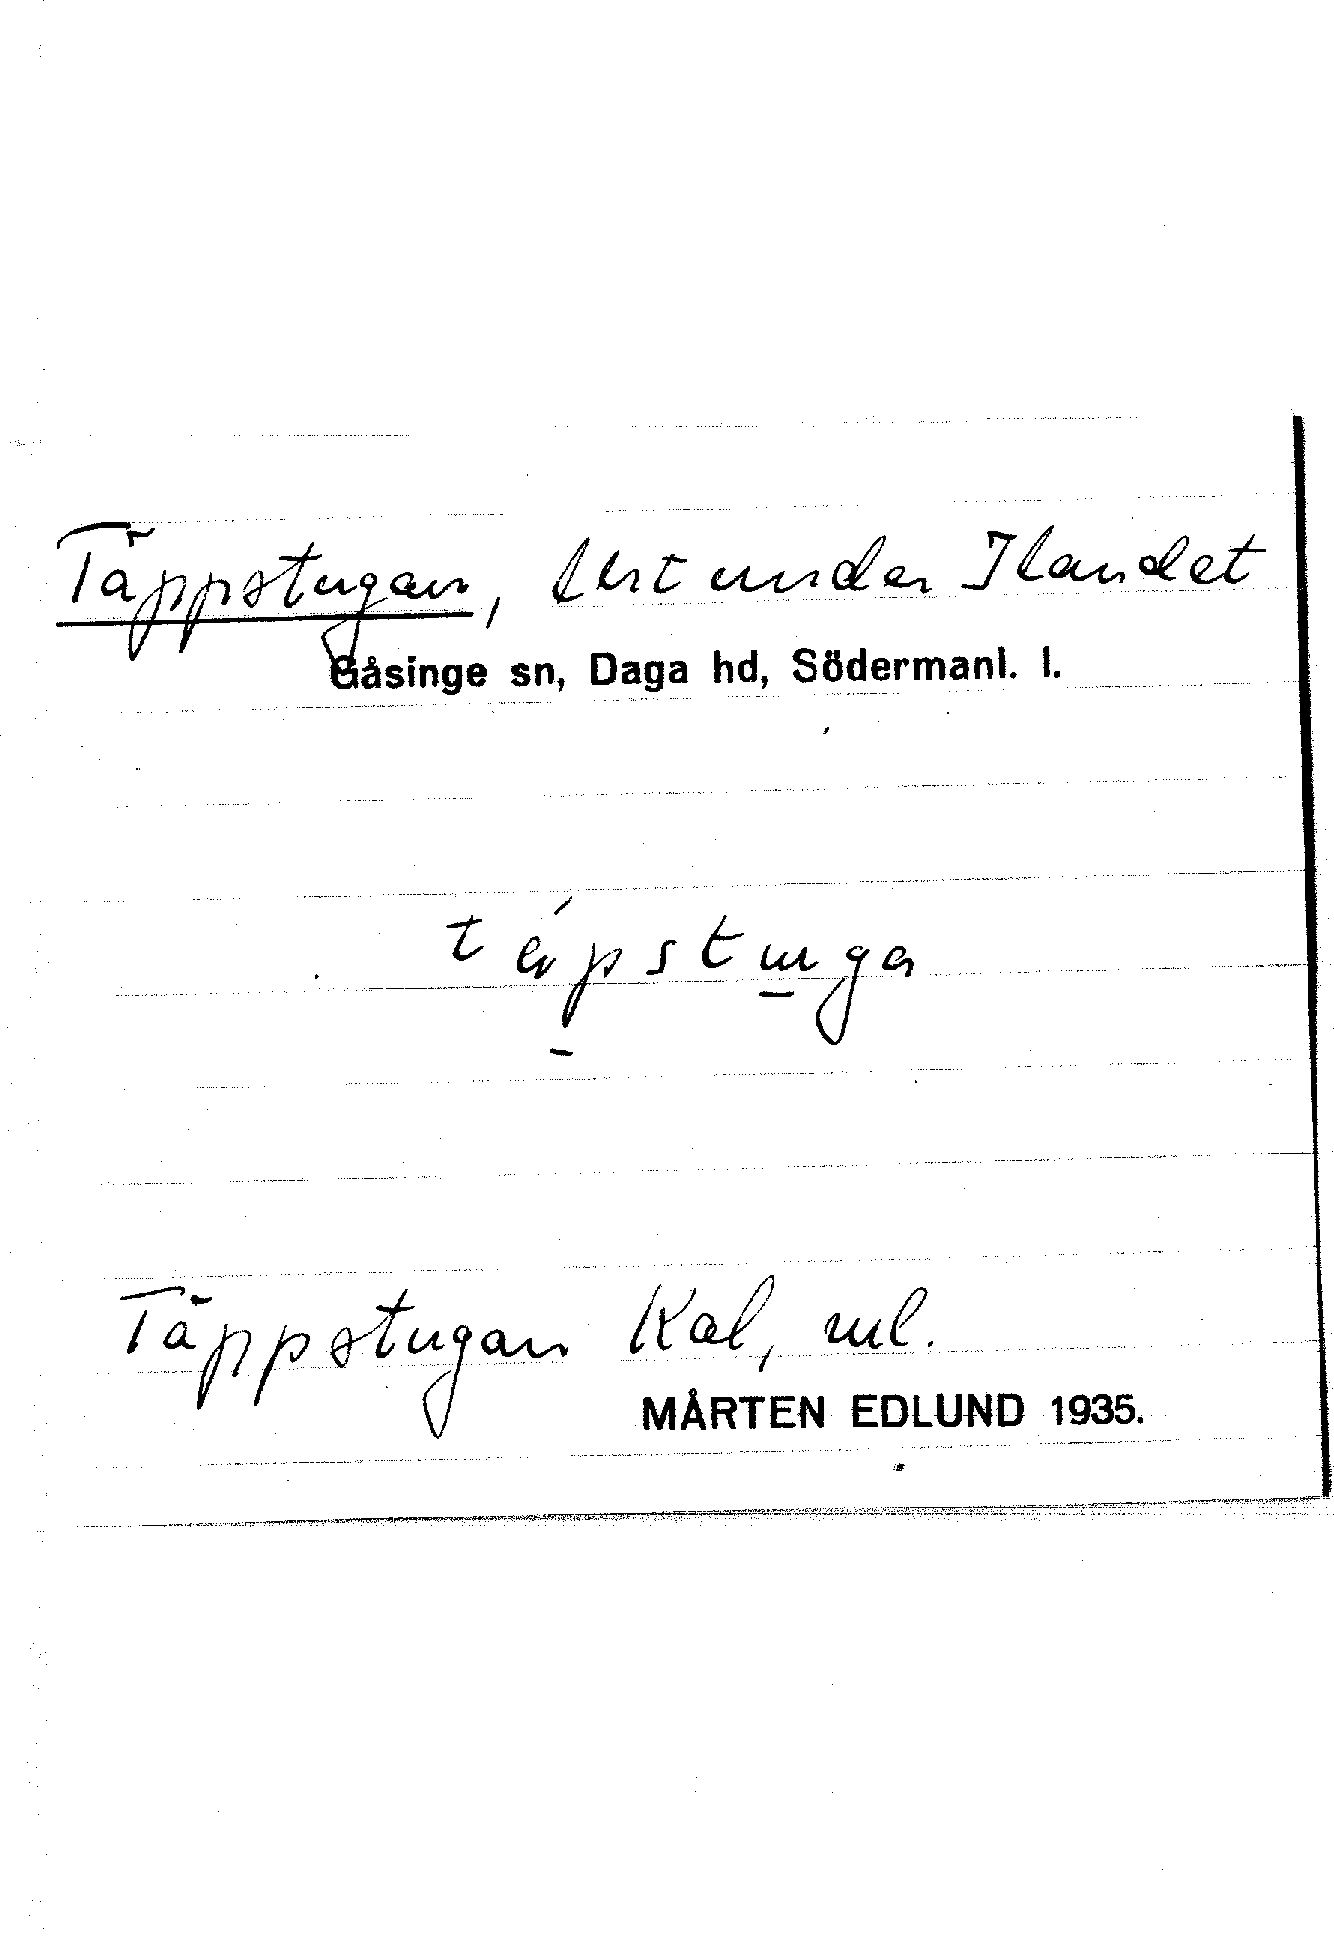 Täppstugan, lht under Ilandet
Gåsinge sn, Daga hd, Södermanl. l.
täpstuga
Täppstugan Kal, ml.
MÅRTEN EDLUND 1935.